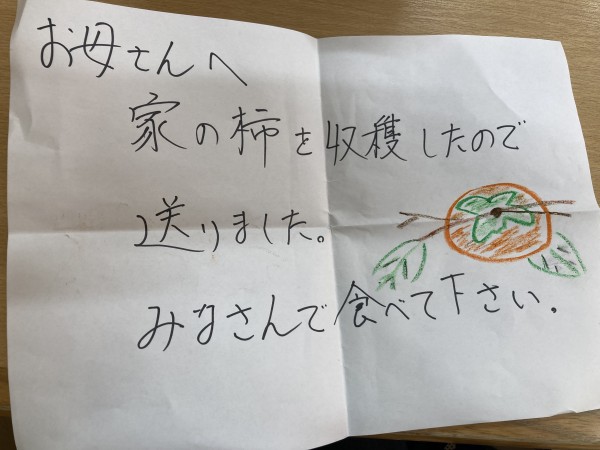 お母さんへ
家の柿を収穫したので
送りました。
みなさんで食べて下さい.